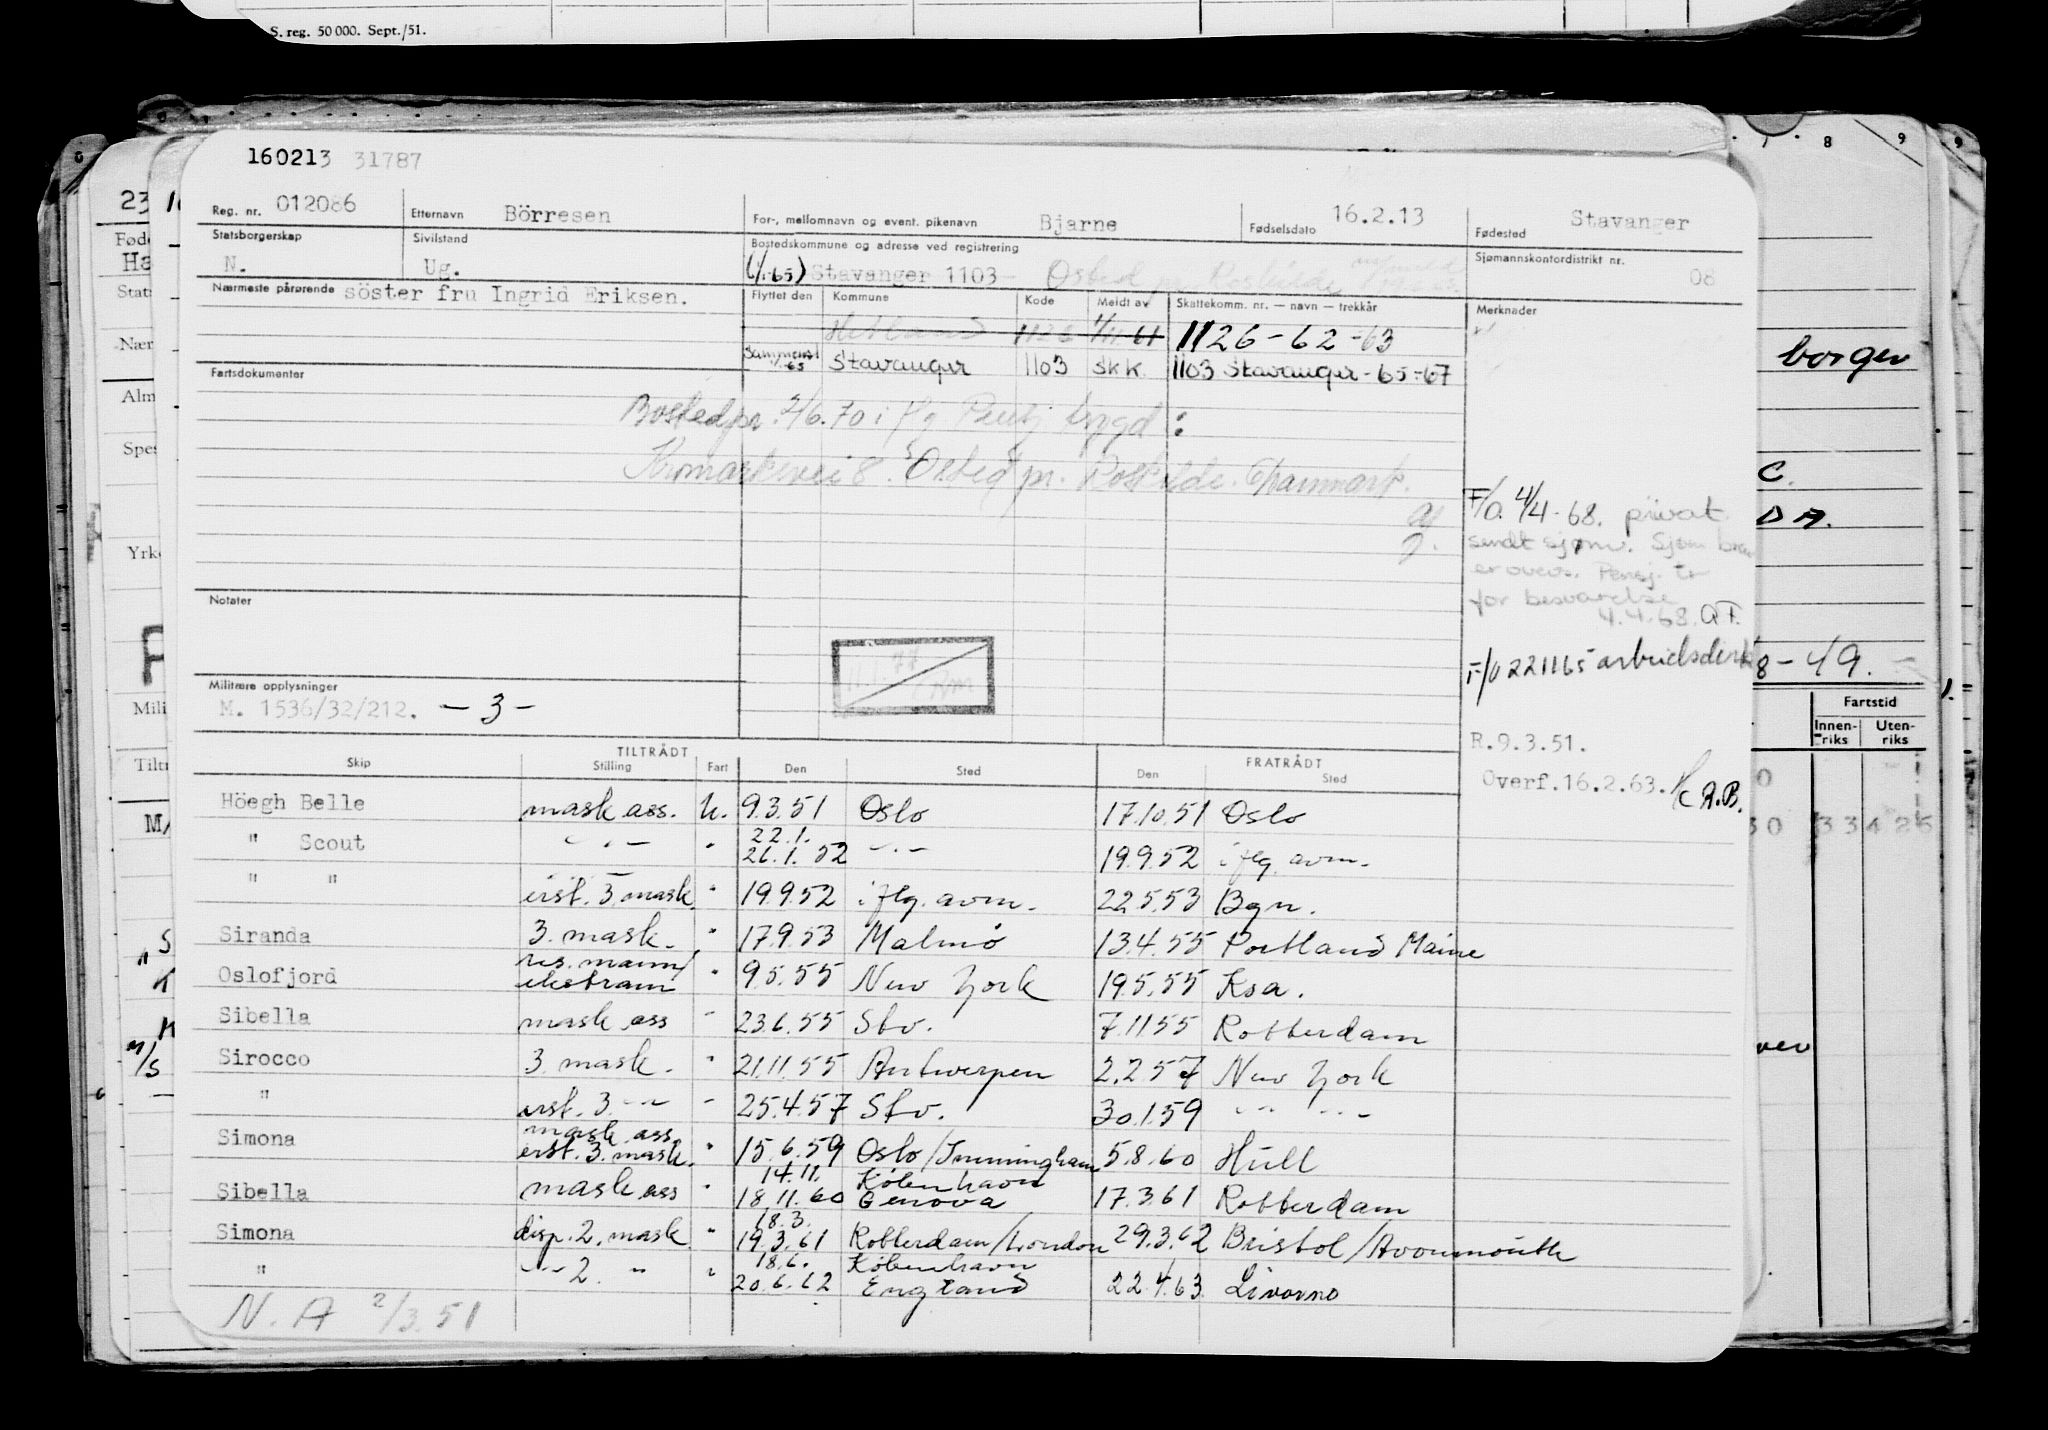 S. reg. 50 000. Sept./51.
160213 31787
Reg. nr. 012086 Etternavn Börresen For-, mellomnavn og event. pikenavn Bjarne Fødselsdato 16.2.13 Fødested Stavanger
Statsborgerskap N. Sivilstand Ug. Bostedskommune og adresse ved registrering Stavanger 1103 - Osted pr. Roskilde Sjømannskontordistrikt nr. 08
Nærmeste pårørende söster fru Ingrid Eriksen. Flyttet den Kommune Kode Meldt av Skattekomm. nr. — navn — trekkår Merknader
Hetland 1126 1/11 61 1126-62-63
65 Stavanger 1103 skk 1103 Stavanger-65-67
Fartsdokumenter
Bosted pr. 2/6.70 i flg Pensj trygd :
8. Osted pr. Roskilde. Danmark.
F/O. 4/4-68. privat
sendt sjømv.
er overs. Pensj. tr
for besvarelse
4.4.68. QF.
Notater
F/O 221165 arbeidsdir
Militære opplysninger
M. 1536/32/212. - 3 -
R.9.3.51.
Overf.16.2.63. A.B.
TILTRÅDT FRATRÅDT
Skip Stilling Fart Den Sted Den Sted
Höegh Belle mask ass. U. 9.3.51 Oslo 17.10.51 Oslo
" Scout -"- " 22.1. 26.1.52 -"- 19.9.52 i flg. avm.
" " erst. 3. mask. " 19.9.52 i flg. avm. 22.5.53 Bgn.
Siranda 3. mask. " 17.9.53 Malmö 13.4.55 Portland Maine
Oslofjord res. mann/ ekstram " 9.5.55 New York 19.5.55 Ksa.
Sibella mask ass " 23.6.55 Stv. 7.11.55 Rotterdam
Sirocco 3. mask. " 21.11.55 Antwerpen 2.2.57 New York
" erst. 3. -"- " 25.4.57 Stv. 30.1.59 -"- -"-
Simona mask ass erst. 3. mask. " 15.6.59 Oslo/Immingham 5.8.60 Hull
Sibella mask ass " 14.11. 18.11.60 København Genova 17.3.61 Rotterdam
Simona disp. 2. mask. " 18.3. 19.3.61 Rotterdam/London 29.3.62 Bristol/Avonmouth
" -"- 2. " " 18.6. 20.6.62 København England 22.4.63. Livorno
N. A 2/3.51
8 9
23
Fød
Ha
Stat
Nær
Alm
Spes
Yrk
Mili
Tilt
M/S
borger
C.
D A.
8-49.
Fartstid
Innen-riks Uten-riks
30 33425